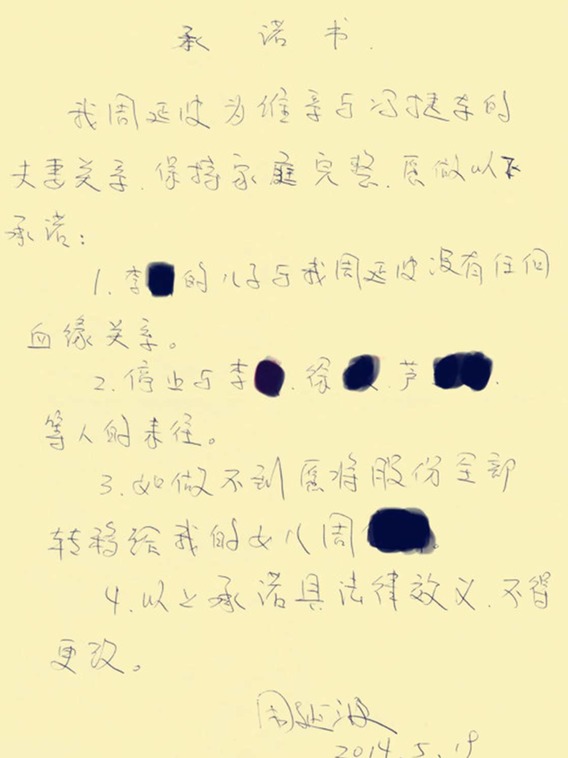 承诺书.
我周延波为维系与冯捷东的
夫妻关系.保持家庭完整.愿做以下
承诺:
1.李 的儿子与我周延波没有任何
血缘关系。
2.停止与李 .徐 .芦 .
等人的来往。
3.如做不到愿将股份全部
转移给我的女儿周 .
4.以上承诺具法律效义.不得
更改。
周延波
2014.5.19